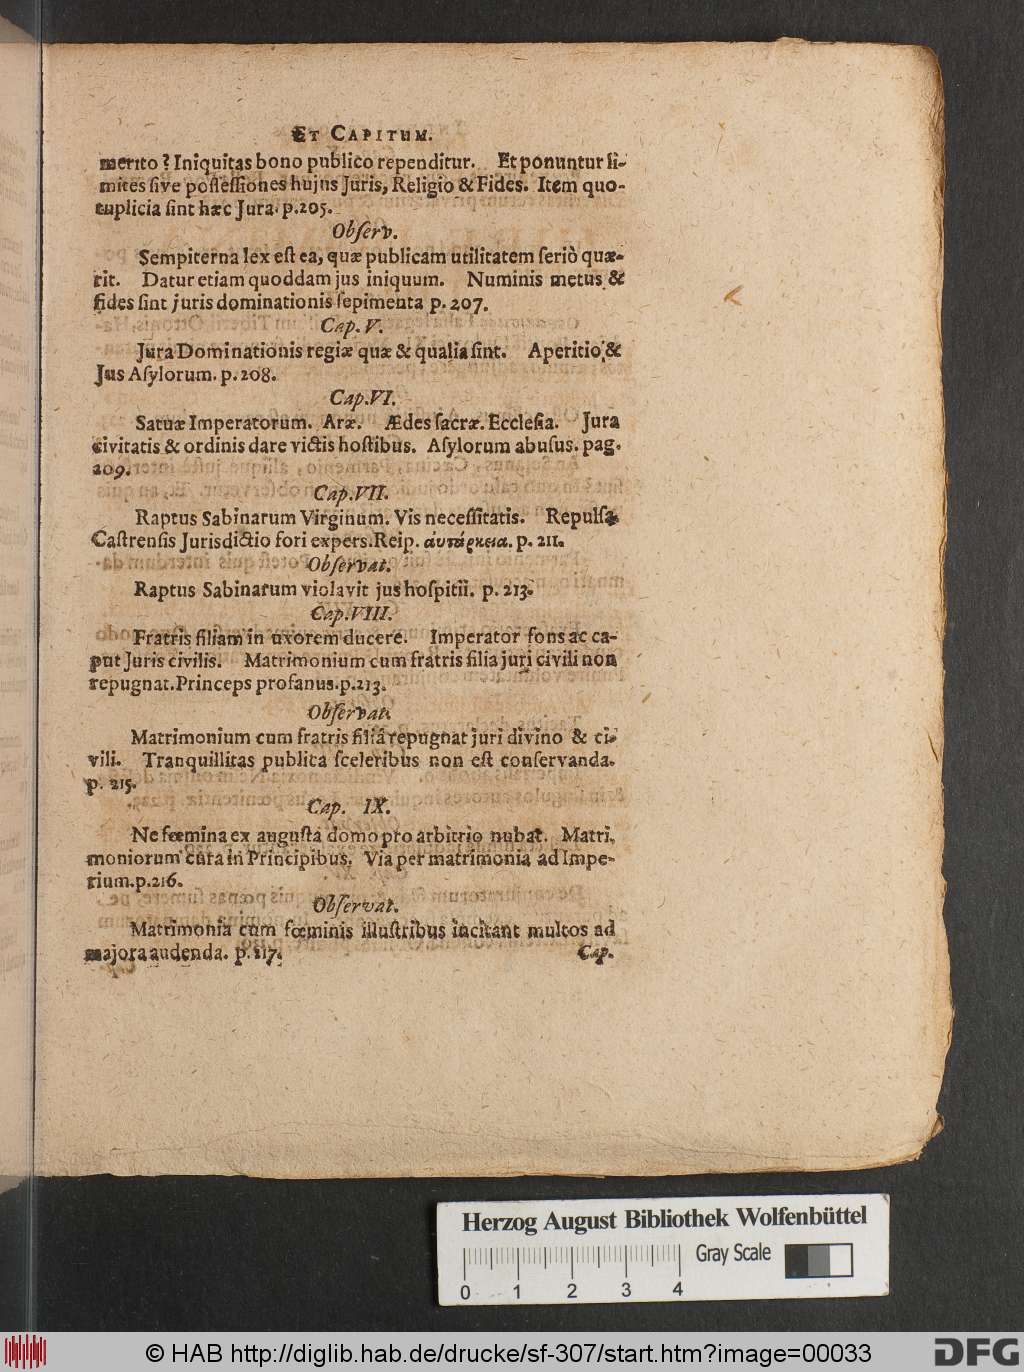 ET CAPITUM.
merito? Iniquitas bono publico rependitur. Et ponuntur li-
mites ſive poſſeſſiones hujus Juris, Religio & Fides. Item quo-
tuplicia ſint hæc Jura. p. 205.
Obſerv.
Sempiterna lex eſt ea, quæ publicam utilitatem ſeriò quæ-
rit. Datur etiam quoddam jus iniquum. Numinis metus &
fides ſint juris dominationis ſepimenta p. 207.
Cap. V.
Jura Dominationis regiæ quæ & qualia ſint. Aperitio &
Jus Aſylorum. p. 208.
Cap. VI.
Satuæ Imperatorum. Aræ. Ædes ſacræ. Eccleſia. Jura
civitatis & ordinis dare victis hoſtibus. Aſylorum abuſus. pag.
209.
Cap. VII.
Raptus Sabinarum Virginum. Vis neceſſitatis. Repulſa
Caſtrenſis Jurisdictio fori expers. Reip. αυτάρκεια. p. 211.
Obſervat.
Raptus Sabinarum violavit jus hoſpitii. p. 213.
Cap. VIII.
Fratris filiam in uxorem ducere. Imperator fons ac ca-
put Juris civilis. Matrimonium cum fratris filia juri civili non
repugnat. Princeps profanus. p. 213.
Obſervat.
Matrimonium cum fratris filiâ repugnat juri divino & ci-
vili. Tranquillitas publica ſceleribus non eſt conſervanda.
p. 215.
Cap. IX.
Ne fœmina ex auguſta domo pro arbitrio nubat. Matri-
moniorum cura in Principibus. Via per matrimonia ad Impe-
rium. p. 216.
Obſervat.
Matrimonia cum fœminis illuſtribus incitant multos ad
majora audenda. p. 217.
Cap.
Herzog August Bibliothek Wolfenbüttel
Gray Scale
0 1 2 3 4
© HAB http://diglib.hab.de/drucke/sf-307/start.htm?image=00033
DFG